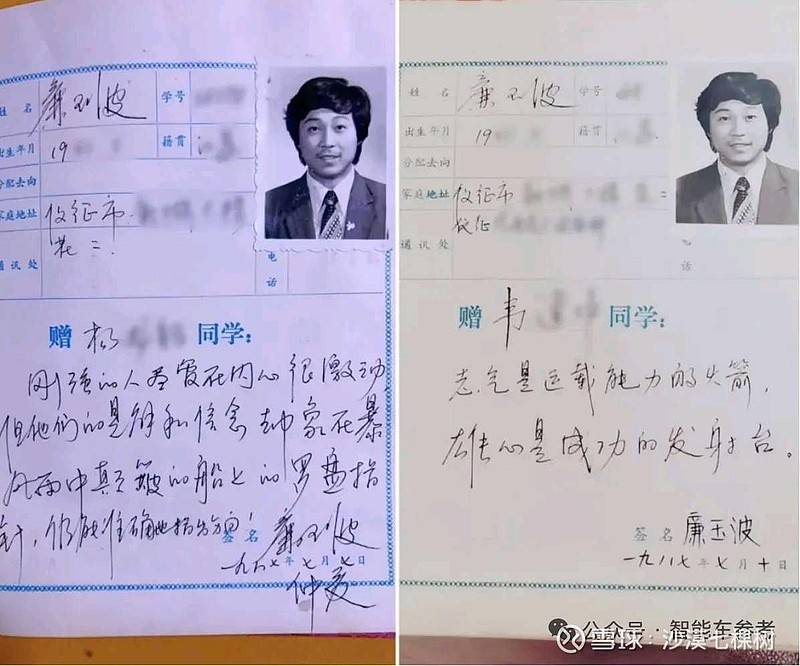 姓 名
廉玉波
学号
出生年月
19
籍贯
分配去向
家庭地址
仪征市
通讯处
电
话
赠 杨 同学:
刚强的人尽管在内心很激动
但他们的见解和信念却象在暴
风雨中颠簸的船上的罗盘指
针,仍能准确地指出方向!
签名 廉玉波
一九八七年七月七日
姓 名
廉玉波
学号
出生年月
19
籍贯
分配去向
家庭地址
仪征市
仪征
通讯处
话
赠 韦 同学:
志气是运载能力的火箭,
雄心是成功的发射台。
签名 廉玉波
一九八七年七月十日
公众号·智能车参考
雪球:沙漠七棵树